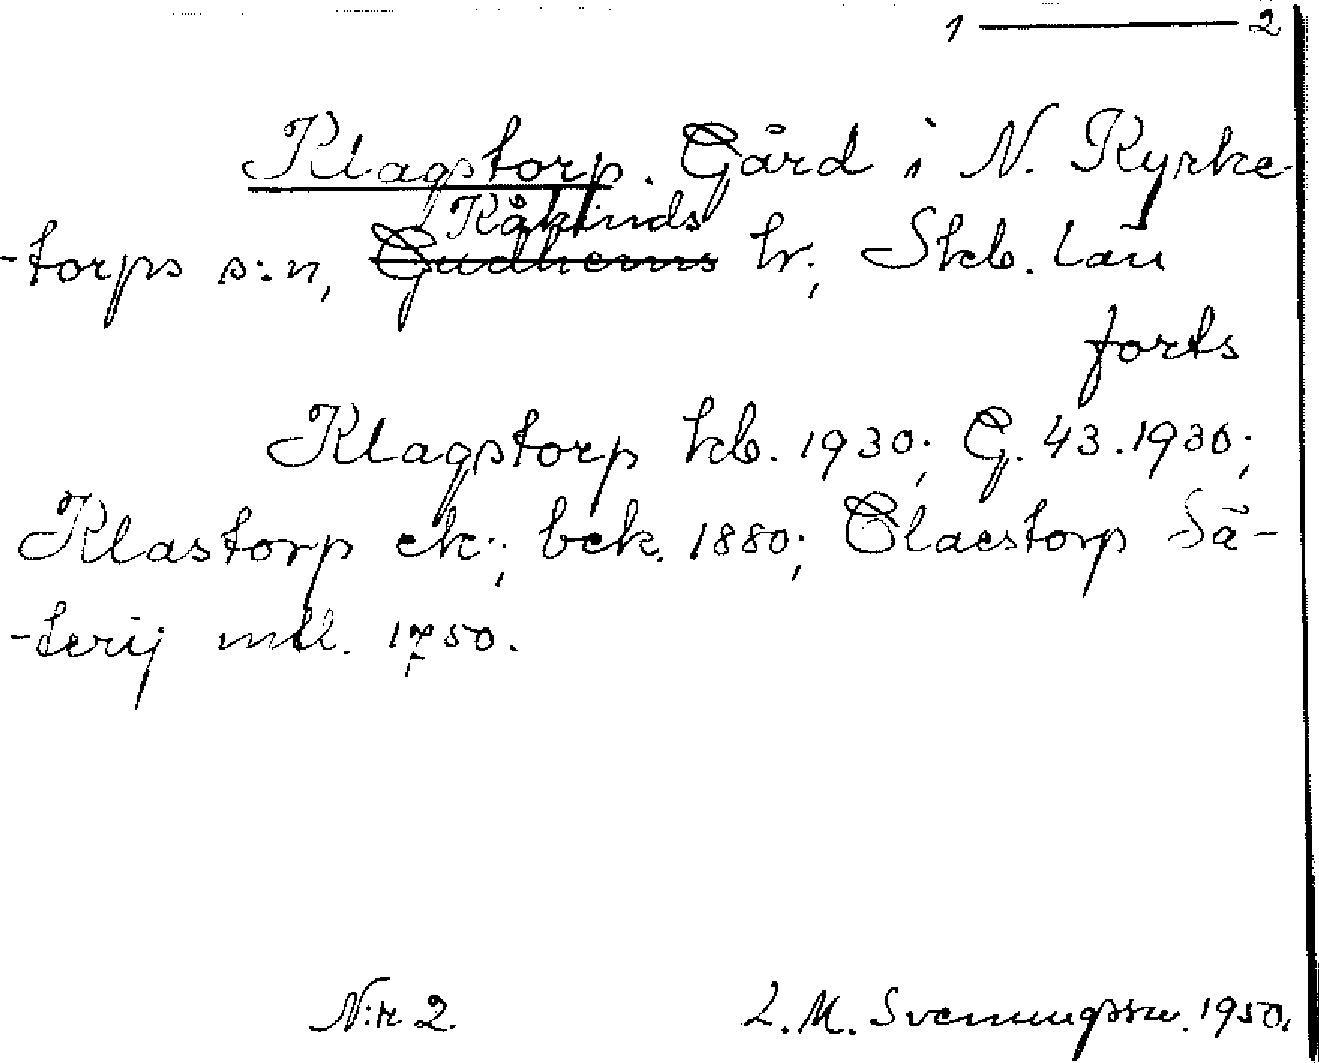 1 — 2
Klagstorp. Gård i N. Kyrke-
-torps s:n, Kåkinds hr; Skb. län
forts
Klagstorp kb. 1930; G. 43. 1930;
Klastorp ek; bek. 1880; Claestorp Sä-
-terij mtl. 1750.
N:r 2. L. M. Svenungsson. 1950.